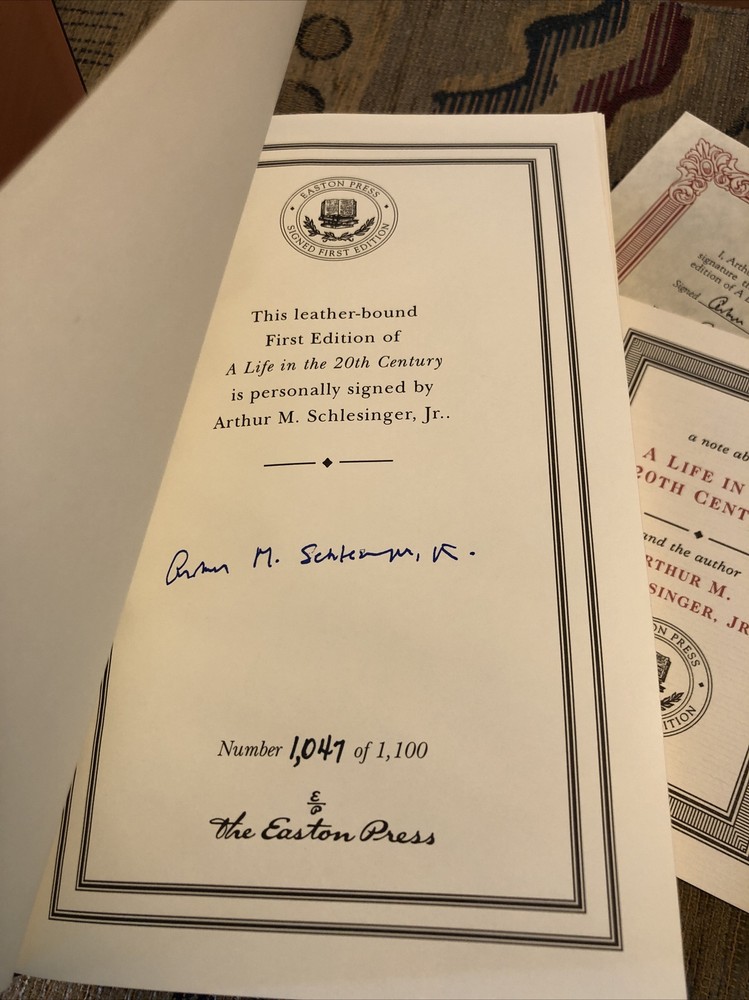 EASTON PRESS
SIGNED FIRST EDITION
This leather-bound
First Edition of
A Life in the 20th Century
is personally signed by
Arthur M. Schlesinger, Jr..
Arthur M. Schlesinger, Jr.
Number 1,047 of 1,100
E
P
The Easton Press
I, Arth
signature th
edition of A L
Signed
a note ab
A LIFE IN
20TH CENT
and the author
RTHUR M.
SINGER, JR
ON PRESS
ITION